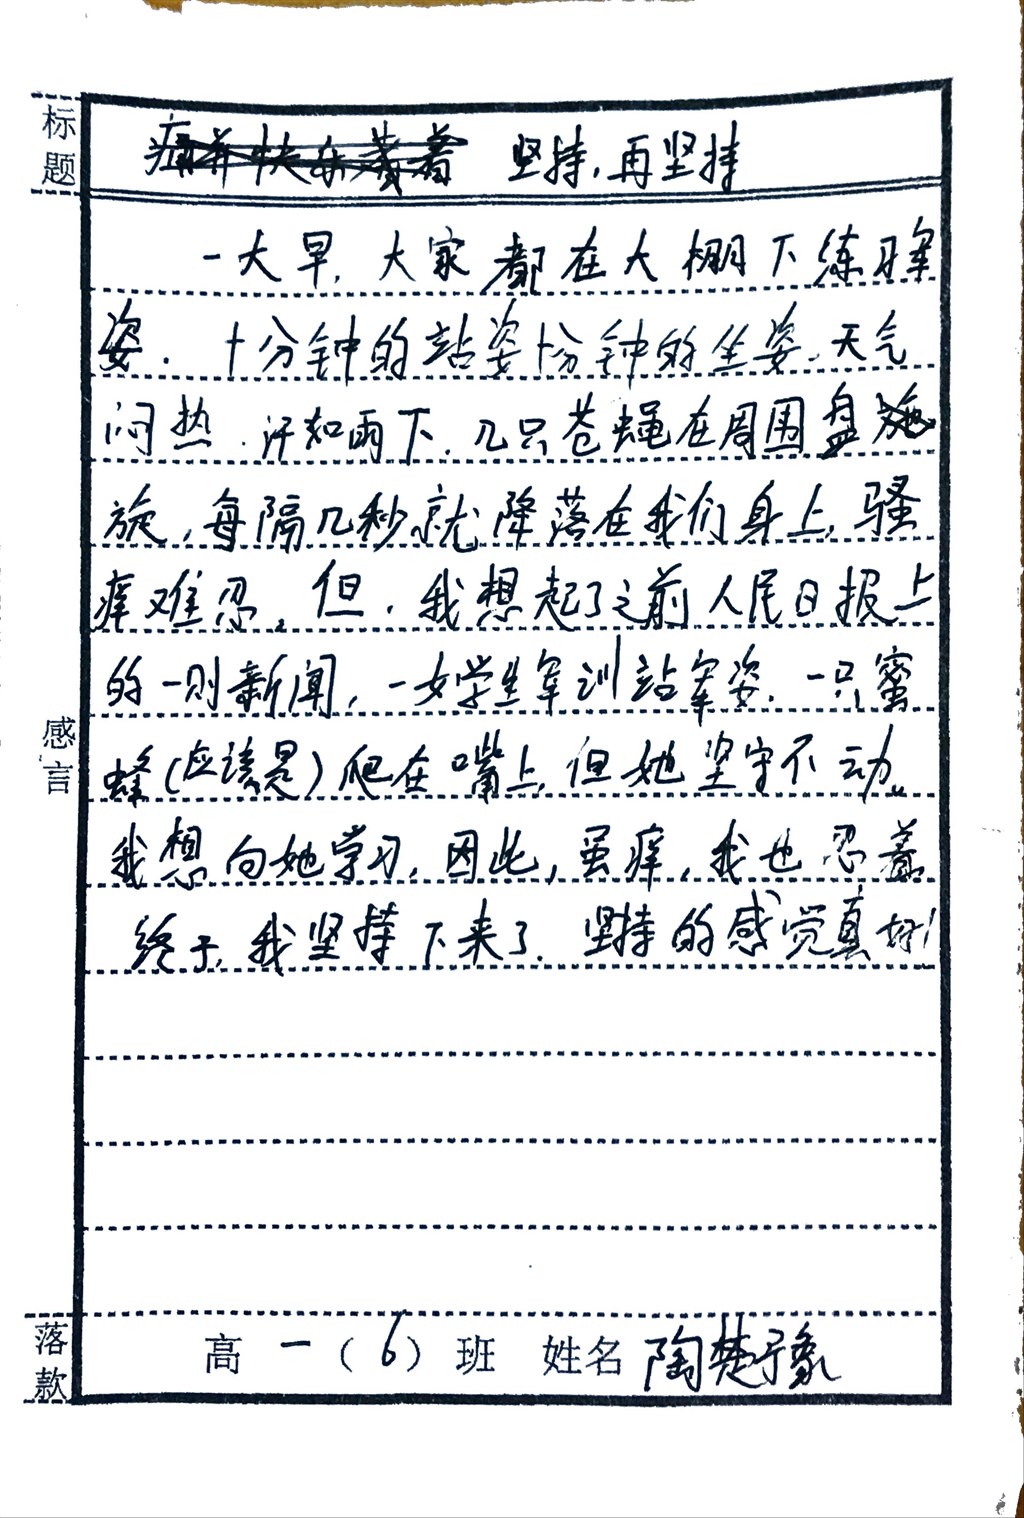 标题
坚持,再坚持
一大早,大家都在大棚下练习军
姿.十分钟的站姿十分钟的坐姿.天气
闷热.汗如雨下.几只苍蝇在周围盘
旋,每隔几秒就降落在我们身上,骚
痒难忍。但,我想起了之前人民日报上
的一则新闻,一女学生军训站军姿.一只蜜
蜂(应该是)爬在嘴上,但她坚守不动。
我想向她学习,因此,虽痒,我也忍着
终于,我坚持下来了.坚持的感觉真好!
感言
落款
高一(6)班 姓名 陶楚豫